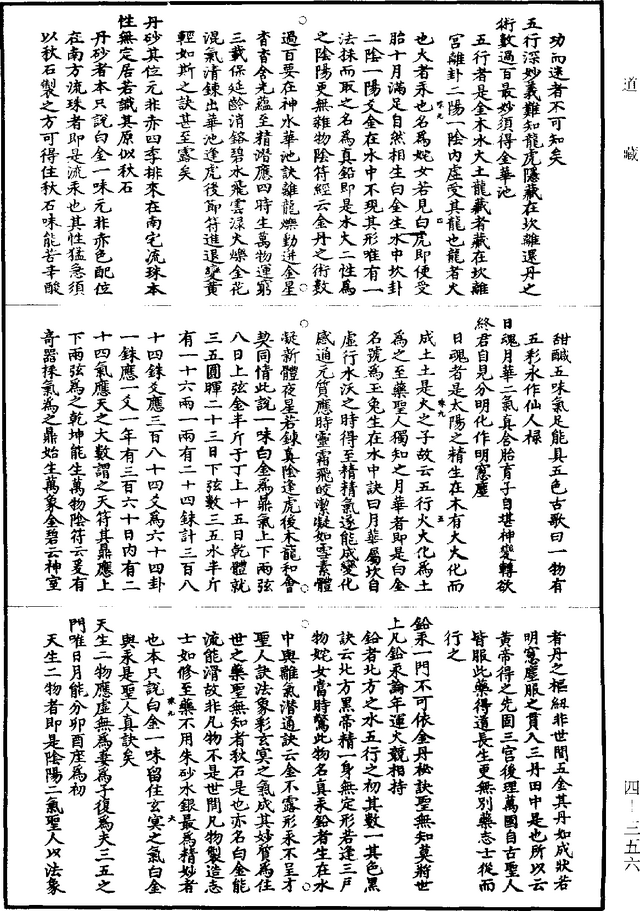 道藏
功而迷者不可知矣
五行深妙義難知龍虎隱藏在坎離還丹之
術數過百最妙須得金華池
五行者是金木水火土龍藏者藏在坎離
宮離卦二陽一陰內虛受其龍也龍者火
也火者汞也名為姹女若見白虎即便受
胎十月滿足自然相生白金生水中坎卦
二陰一陽爻金在水中不現其形唯有一
法採而取之名為真鉛即是水火二性為
之陰陽更無雜物陰符經云金丹之術數
過百要在神水華池訣離龍爍動迸金星
杳杳含光蘊至精潛應四時生萬物運窮
三載保延齡消鉻碧水飛雲淥火爍金花
混氣清鍊出華池逢虎後節符進退變黃
輕如斯之訣甚至露矣
丹砂其位元非赤四季排來在南宅流珠本
性無定居若識其原似秋石
丹砂者本只說白金一味元非赤色配位
在南方流珠者即是流汞也其性猛急須
以秋石製之方可得住秋石味能苦辛酸
甜鹹五味氣足能具五色古歌曰一物有
五彩永作仙人祿
日魂月華二氣真含胎育子自堪神變轉欲
終君自見分明化作明窻塵
日魂者是太陽之精生在木有火火化而
成土土是火之子故云五行火火化為土
為之至藥聖人獨知之月華者即是白金
名號為玉兔生在水中訣曰月華屬坎自
虛行水沃之時得至精精氣遂能成變化
感通元質應時靈霜飛皎潔凝如雪素體
凝新體夜星若鍊真陰逢虎後木龍和會
契同情此說一味白金為鼎氣上下兩弦
八日上弦金半斤于丁上十五日乾體就
三五圓暉二十三日下弦數三五水半斤
有一十六兩一兩有二十四銖計三百八
十四銖爻應三百八十四爻為六十四卦
一銖應一爻一年有三百六十日內有二
十四氣應天之大數謂之天符其鼎應上
下兩弦為之乾坤能生萬物陰符云爰有
奇器採氣為之鼎始生萬象金碧云神室
者丹之樞紐非世間五金其丹如成狀若
明窻塵服之貫入三丹田中是也所以云
黃帝得之先固三宮後理萬國自古聖人
皆服此藥得道長生更無別藥志士從而
行之
鉛汞一門不可依金丹秘訣聖無知莫將世
上凡鉛汞論年運火競相持
鉛者北方之水五行之初其數一其色黑
訣云北方黑帝精一身無定形若逢三戶
物姹女當時驚此物名真汞鉛者生在水
中與離氣潛通訣云金不露形汞不呈才
聖人訣法象彩玄冥之氣成其妙質為住
世之藥聖無知者秋石是也亦名白金能
流能滑故非凡物不是世間凡物製造志
士如修至藥不用朱砂水銀最為精妙者
也本只說白金一味留住玄冥之氣白金
與汞是聖人真訣矣
天生二物應虛無為妻為子復為夫三五之
門唯日月能分卯酉座為初
天生二物者即是陰陽二氣聖人以法象
四－三五六